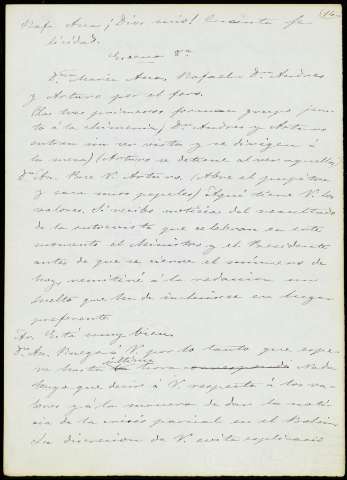 Rafa. Ana ¡Dios mio! Cuánta fe
licidad.
Escena 8ª
Dª María Ana, Rafael, Dn. Andres
y Arturo por el foro.
(Los tres primeros forman grupo jun
to á la chimenea, Dn. Andres y Arturo
entran sin ser vistos y se dirigen á
la mesa) (Arturo se detiene al ver aquello)
Dn. An. Pase V. Arturo. (Abre el pupitre
y saca unos papeles) Aquí tiene V. los
valores. Si recibo noticia del resultado
de la entrevista que celebran en este
momento el Ministro y el Presidente
antes de que se cierre el número de
hoy, remitiré á la redaccion un
suelto que ha de incluirse en lugar
preferente.
Ar. Está muy bien.
Dn. An. Ruego á V. por lo tanto que espe
re hasta última hora. Nada
tengo que decir á V. respecto á los va
lores y á la manera de dar la noti
cia de la crisis parcial en el Bolsin
La discrecion de V. evita explicacio